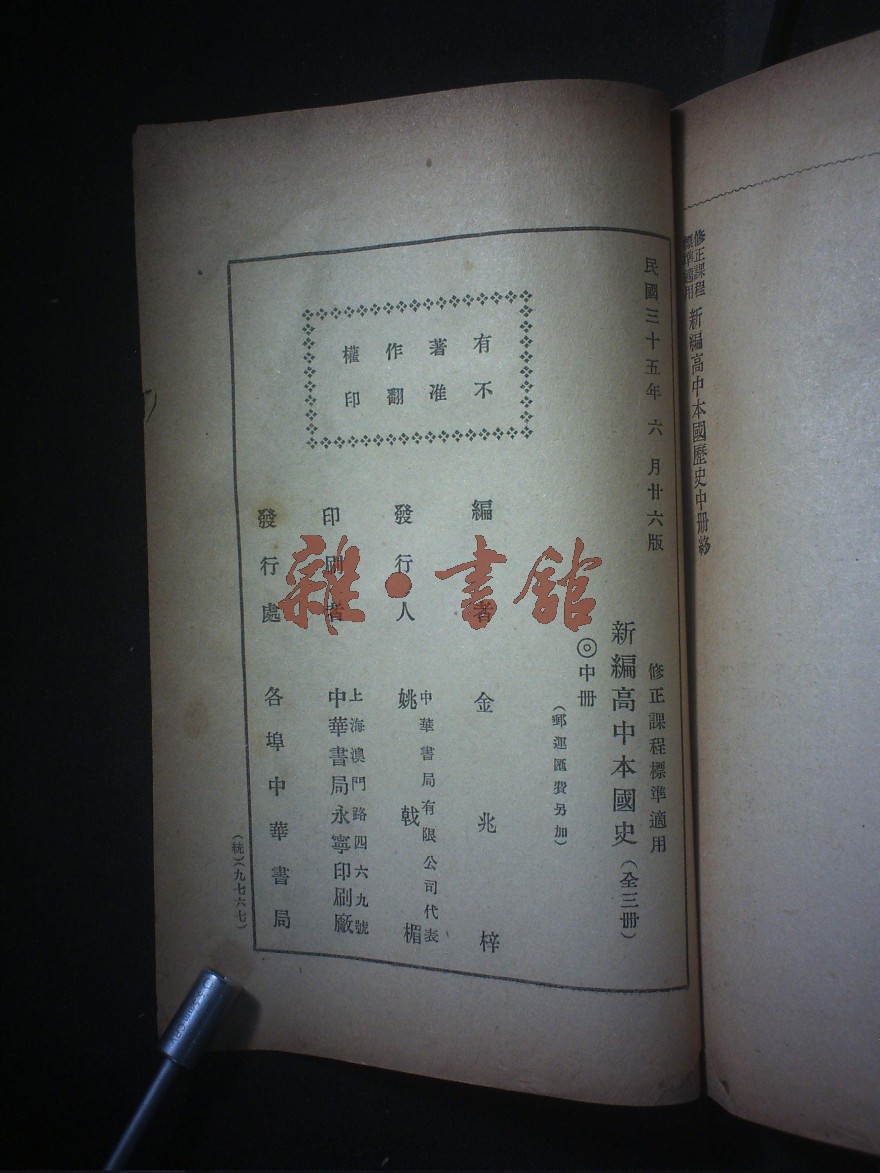 修正課程
標準適用
新編高中本國歷史中册終
民國三十五年六月廿六版
修正課程標準適用
新編高中本國史（全三册）
◎中册
（郵運匯費另加）
有著作權
不准翻印
編者 金兆梓
發行人 中華書局有限公司代表
姚戟楣
印刷者 上海澳門路四六九號
中華書局永寧印刷廠
發行處 各埠中華書局
（統）（九七六七）
雜·書館